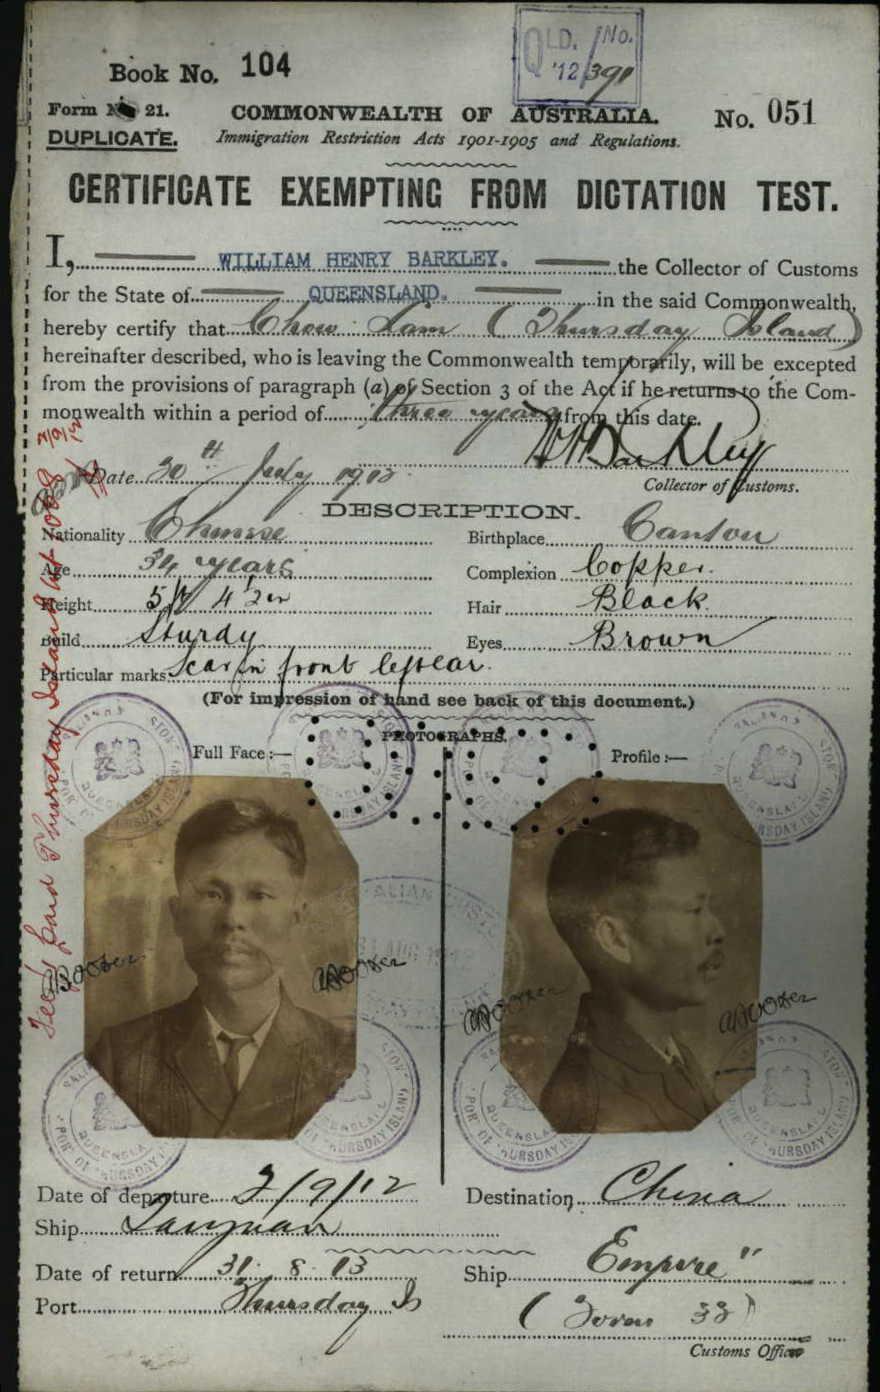 Book No. 104
QLD. No.
'12/391
Form 21.
DUPLICATE.
COMMONWEALTH OF AUSTRALIA.
Immigration Restriction Acts 1901-1905 and Regulations.
No. 051
CERTIFICATE EXEMPTING FROM DICTATION TEST.
I, WILLIAM HENRY BARKLEY. the Collector of Customs
for the State of QUEENSLAND. in the said Commonwealth,
hereby certify that Chow Lam (Thursday Island)
hereinafter described, who is leaving the Commonwealth temporarily, will be excepted
from the provisions of paragraph (a) of Section 3 of the Act if he returns to the Com-
monwealth within a period of three years from this date.
WHBarkley
Date 30th July 1912
Collector of Customs.
DESCRIPTION.
Nationality Chinese
Birthplace Canton
Age 34 years
Complexion Copper.
Height 5ft 4½in
Hair Black.
Build Sturdy
Eyes Brown
Particular marks Scar in front left ear.
(For impression of hand see back of this document.)
PHOTOGRAPHS.
Full Face:—
Profile:—
PORT OF THURSDAY ISLAND
QUEENSLAND
Date of departure 2/9/12
Destination China
Ship Taiyuan
Date of return 31. 8. 13
Ship Empire"
Port Thursday Is
33)
Customs Officer